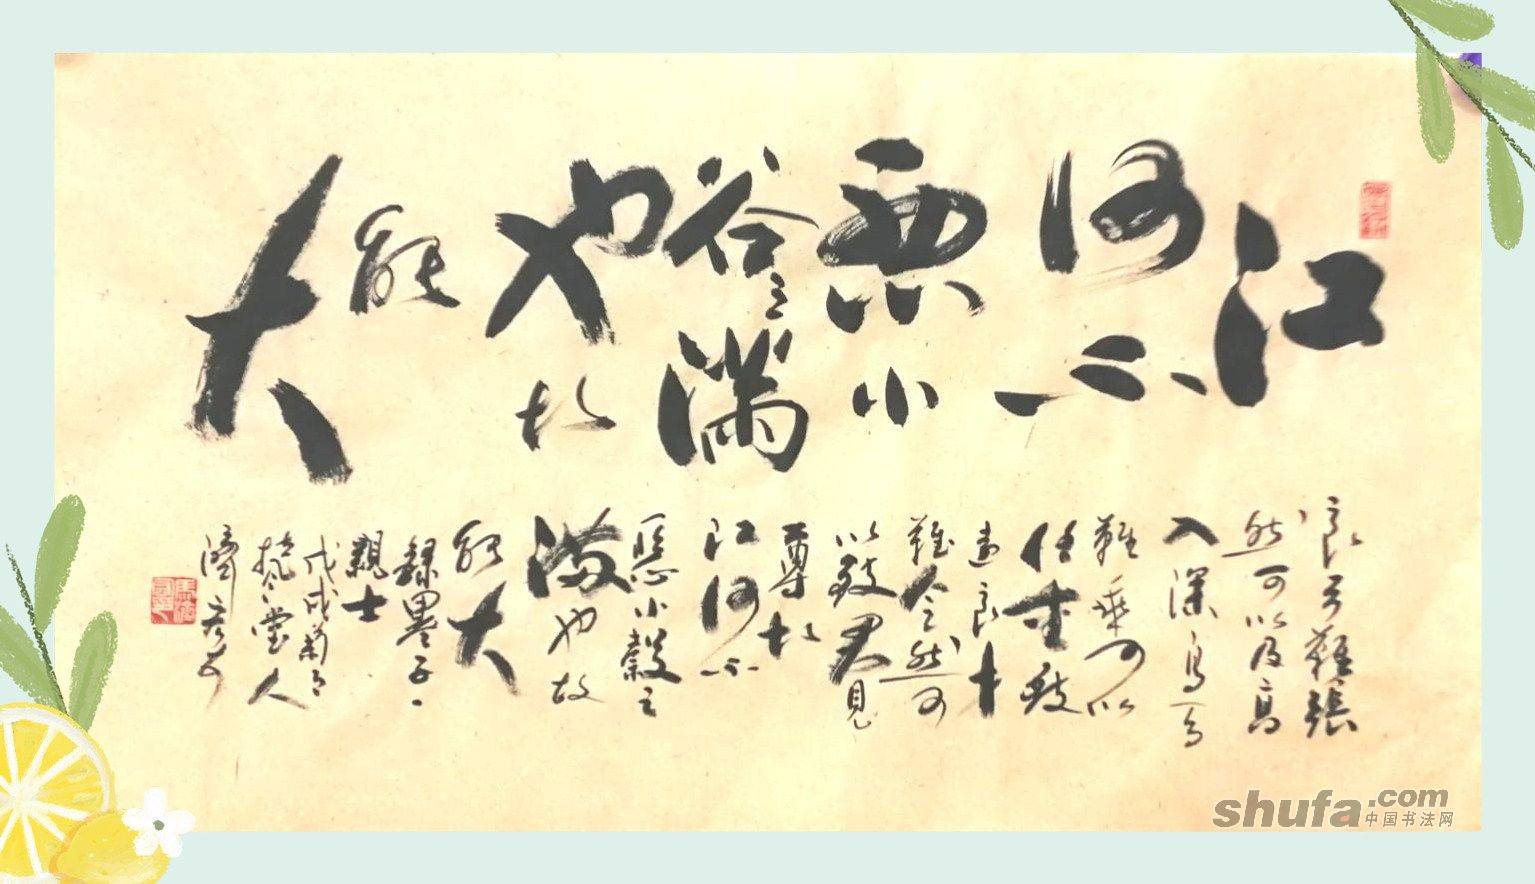 江
河不
惡小
谷之滿
也故
能
大
良弓難張
然可以及高
入深良馬
難乘可以
任重致
遠良才
難令然可
以致君見
尊故
江河不
惡小穀之
滿也故
能大
錄墨子
親士
戊戌菊月
堂人
濟
shufa.com
中国书法网